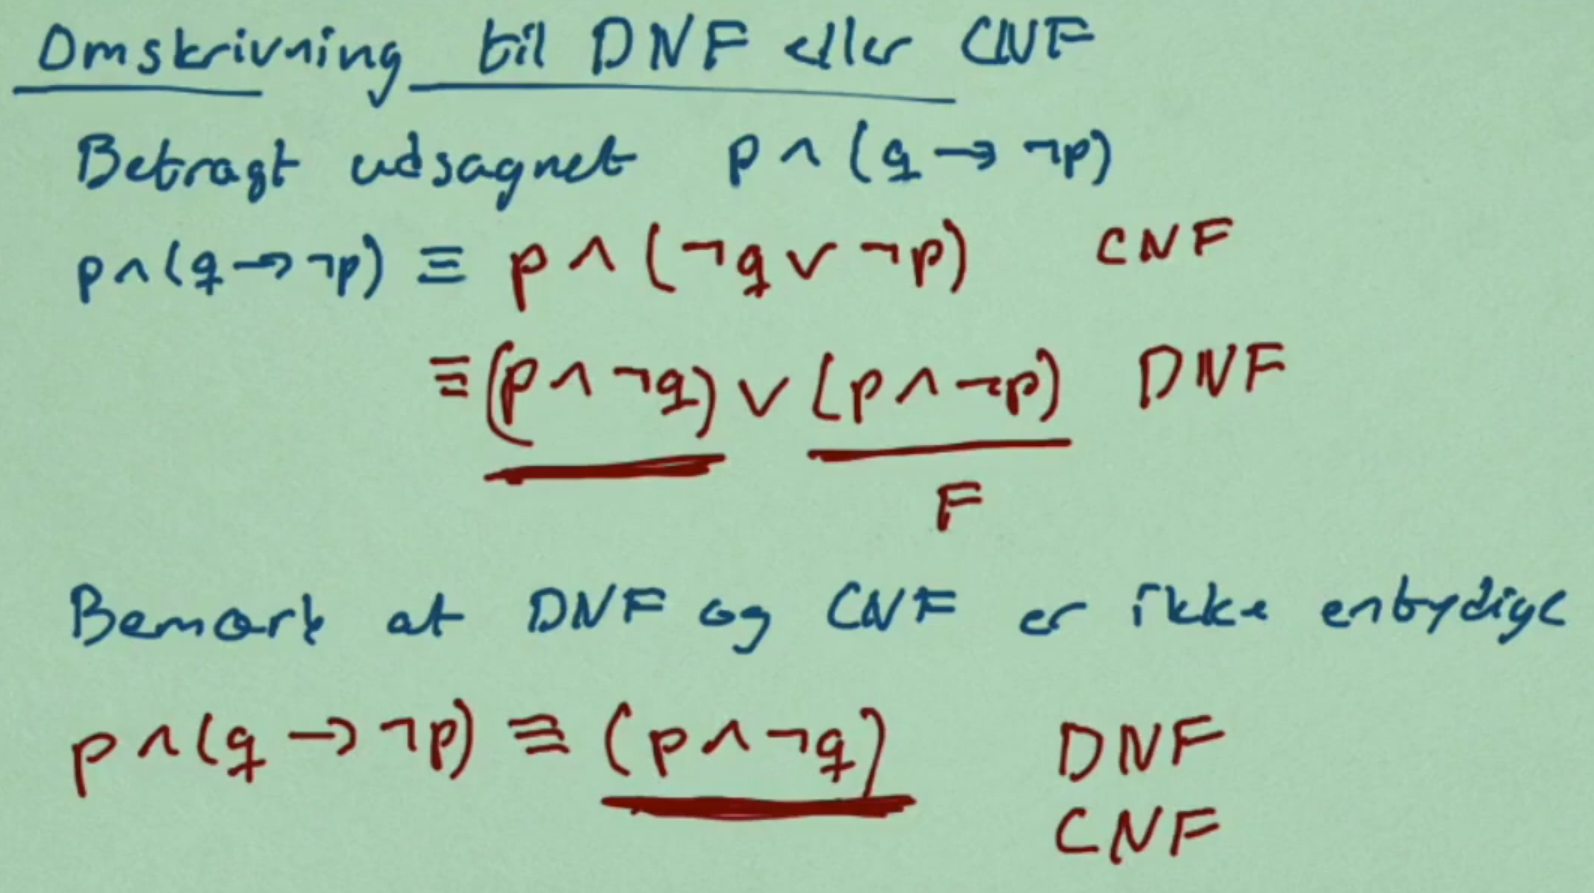 Omskrivning til DNF eller CNF
Betragt udsagnet p ∧ (q → ¬p)
p ∧ (q → ¬p) ≡ p ∧ (¬q ∨ ¬p) CNF
≡ (p ∧ ¬q) ∨ (p ∧ ¬p) DNF
F
Bemærk at DNF og CNF er ikke entydige
p ∧ (q → ¬p) ≡ (p ∧ ¬q) DNF
CNF